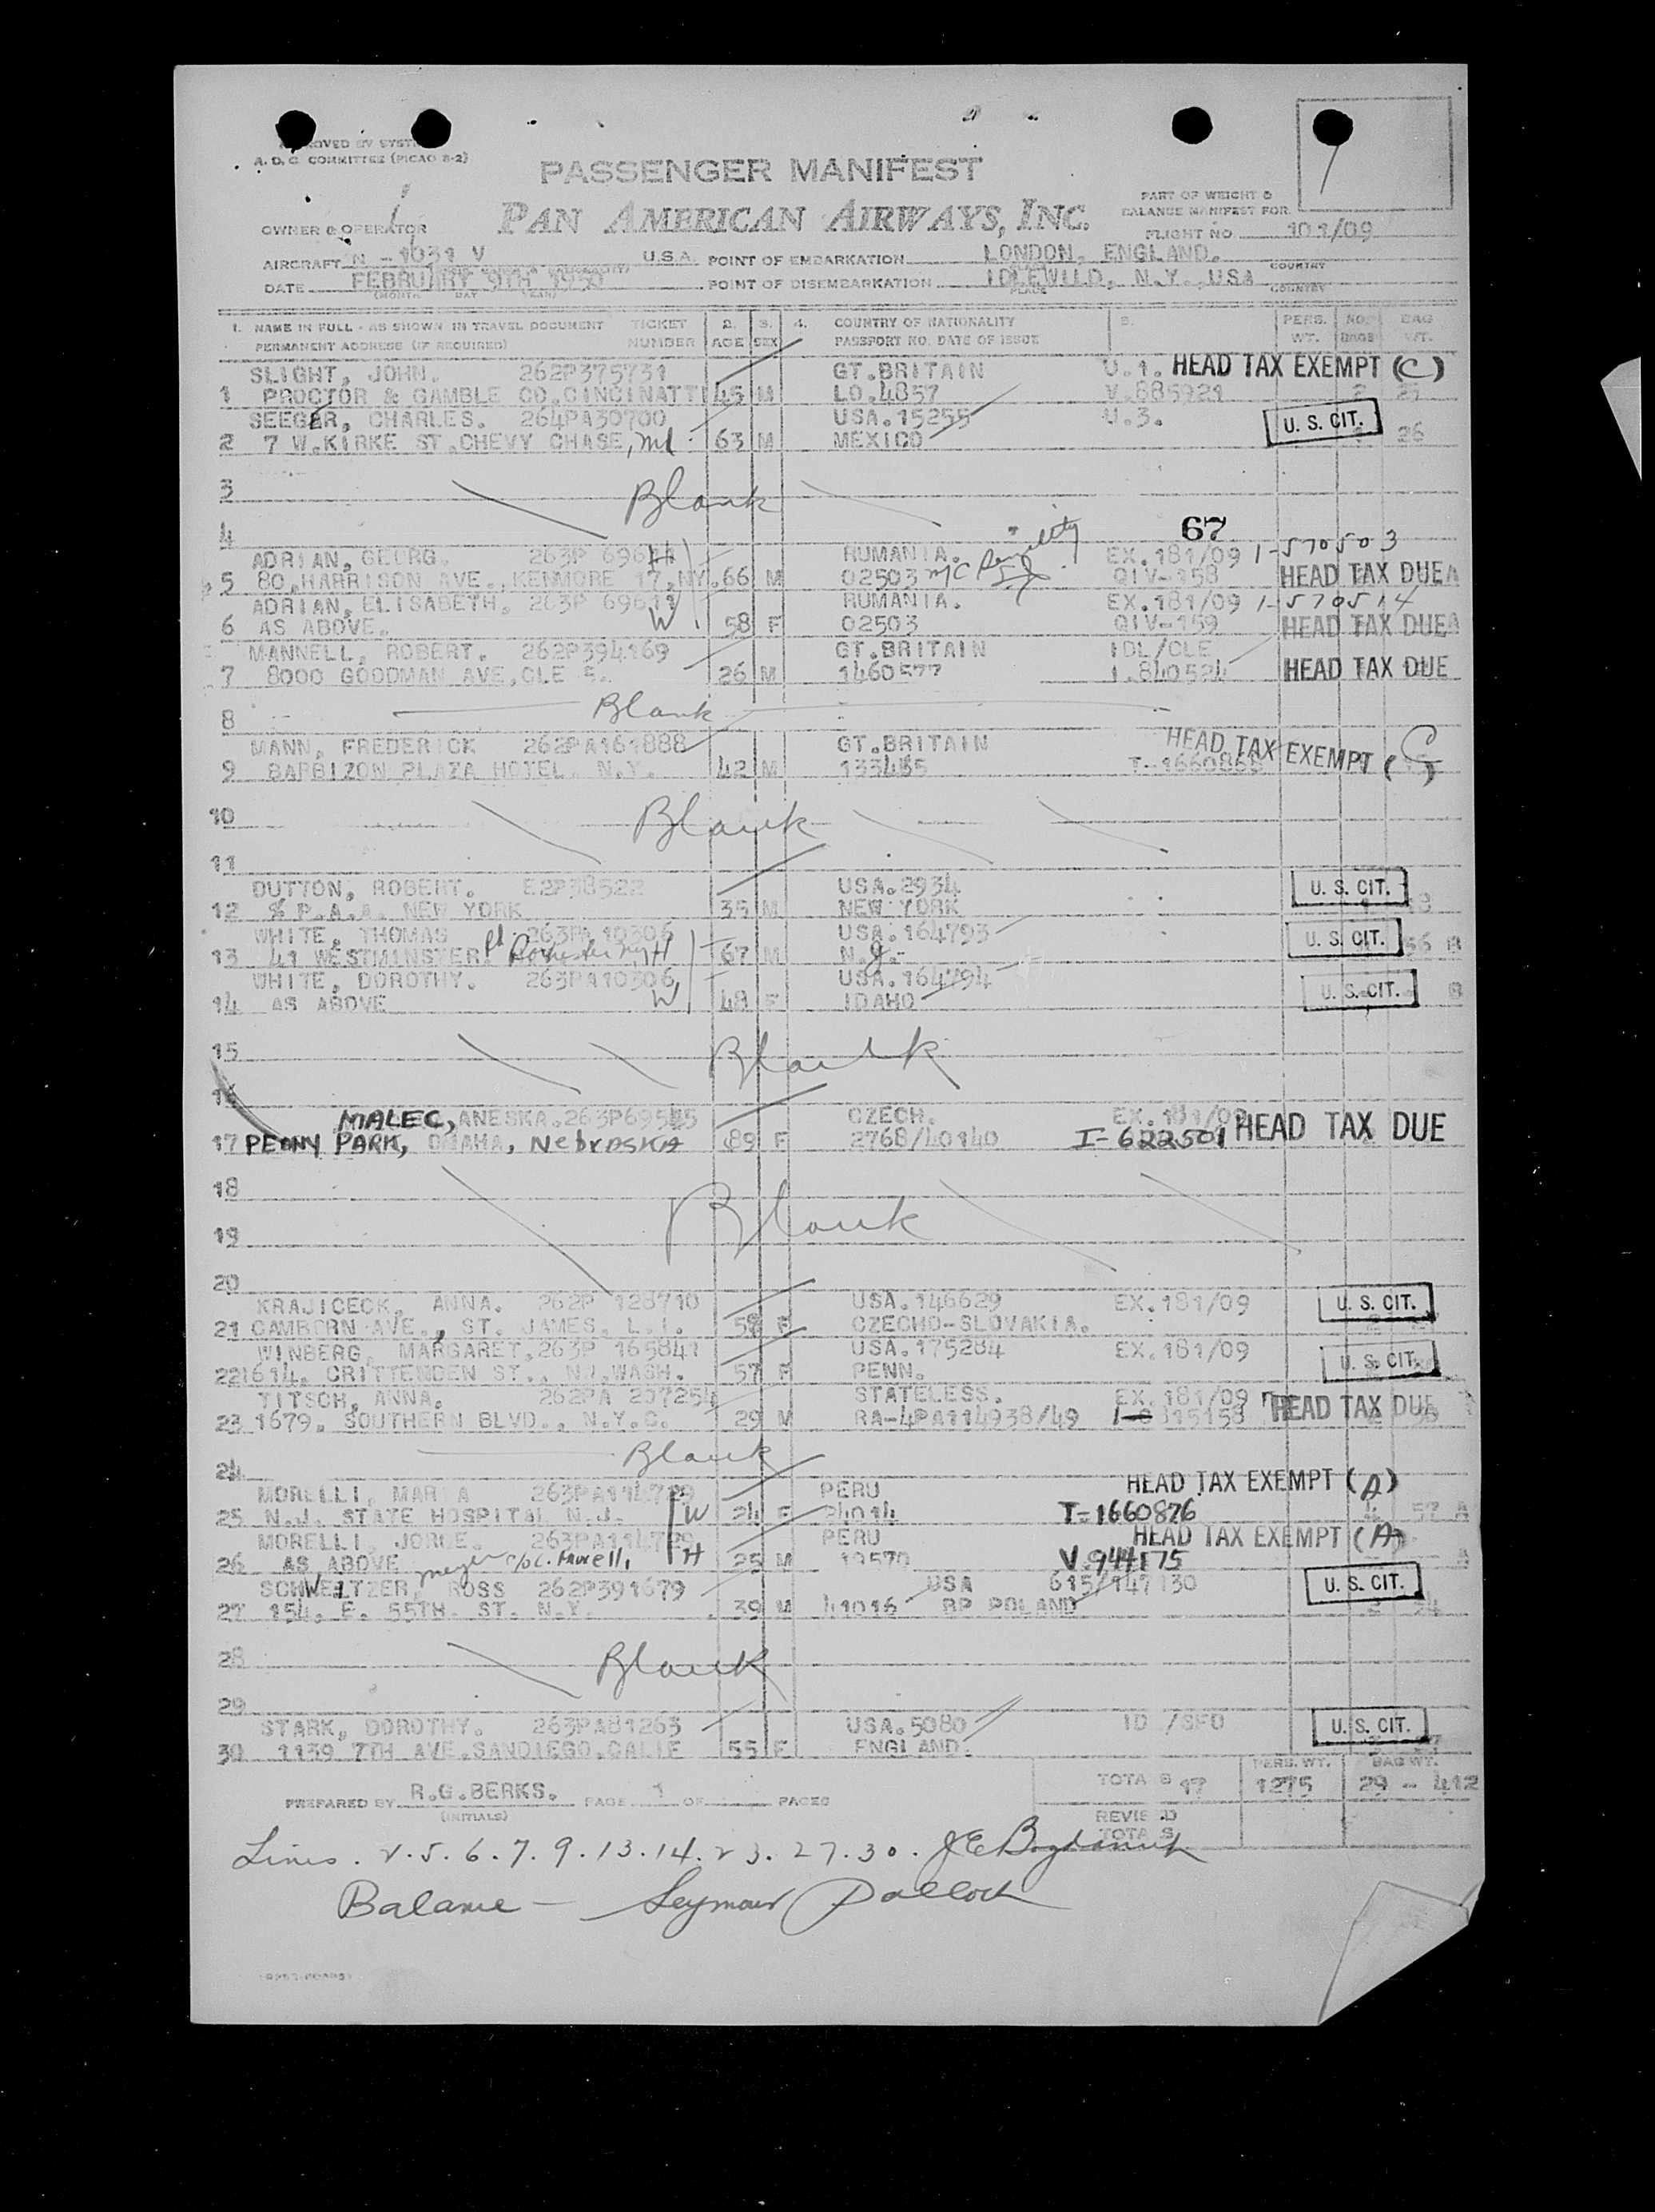 APPROVED BY SYSTEM
A. D. C. COMMITTEE (PICAO 8-2)
PASSENGER MANIFEST
PAN AMERICAN AIRWAYS, INC.
PART OF WEIGHT &
BALANCE MANIFEST FOR
OWNER & OPERATOR
FLIGHT NO. 101/09
AIRCRAFT N - 1031 V U.S.A. POINT OF EMBARKATION LONDON, ENGLAND. COUNTRY
DATE FEBRUARY 9TH 1950 POINT OF DISEMBARKATION IDLEWILD, N.Y. USA
(MONTH DAY YEAR) PLACE COUNTRY
1. NAME IN FULL - AS SHOWN IN TRAVEL DOCUMENT TICKET 2. 3. 4. COUNTRY OF NATIONALITY 5. PERS. NO. BAG
PERMANENT ADDRESS (IF REQUIRED) NUMBER AGE SEX PASSPORT NO. DATE OF ISSUE WT. BAGS WT.
SLIGHT, JOHN. 262P375731 GT.BRITAIN U.1. HEAD TAX EXEMPT (C)
1 PROCTOR & GAMBLE CO.CINCINATTI 45 M LO.4857 V.885921 2 25
SEEGER, CHARLES. 264PA30700 USA.15255 U.3. U. S. CIT.
2 7 W.KIRKE ST.CHEVY CHASE, Md. 63 M MEXICO 26
3 Blank
4 67
ADRIAN, GEORG. 263P 69611 H RUMANIA. EX.181/09 1-570503
5 80,HARRISON AVE.,KENMORE 17,NY. 66 M 02503 QIV-158 HEAD TAX DUE A
ADRIAN, ELISABETH. 263P 69611 RUMANIA. EX.181/09 1-570514
6 AS ABOVE. W 58 F 02503 QIV-159 HEAD TAX DUE A
MANNELL, ROBERT. 262P394169 GT.BRITAIN IDL/CLE
7 8000 GOODMAN AVE,CLE 5. 26 M 1460577 1.840524 HEAD TAX DUE
8 Blank
MANN, FREDERICK 262PA161888 GT.BRITAIN HEAD TAX EXEMPT (G)
9 BARBIZON PLAZA HOTEL. N.Y. 42 M 133485 T-1660855
10 Blank
11
DUTTON, ROBERT. E2P38522 USA.2934 U. S. CIT.
12 % P.A.A. NEW YORK 35 M NEW YORK
WHITE, THOMAS 263PA10306 USA.164793 U. S. CIT.
13 41 WESTMINSTER Rd Rochester NY H 67 M N.J. 56 B
WHITE, DOROTHY. 263PA10306 USA.164794 U. S. CIT.
14 AS ABOVE W 48 F IDAHO B
15 Blank
16
MALEC, ANESKA.263P69545 CZECH. EX.181/09 HEAD TAX DUE
17 PEONY PARK, OMAHA, NebrASKA 89 F 2768/40140 I-622501
18
19 Blank
20
KRAJICECK, ANNA. 262P 128710 USA.146629 EX.181/09 U. S. CIT.
21 CAMBORN AVE., ST. JAMES, L.I. 58 F CZECHO-SLOVAKIA.
WINBERG, MARGARET,263P 165841 USA.175284 EX.181/09
22 1614. CRITTENDEN ST., NW.WASH. 57 F PENN. U. S. CIT.
TITSCH, ANNA. 262PA 207254 STATELESS. EX.181/09 HEAD TAX DUE
23 1679. SOUTHERN BLVD., N.Y.C. 29 M RA-4PA114938/49 315158
24 Blank
MORELLI, MARIA 263PA114729 PERU HEAD TAX EXEMPT (A)
25 N.J. STATE HOSPITAL N.J. W 24 F 24014 I-1660876 4 57 A
MORELLI, JORGE. 263PA114729 PERU HEAD TAX EXEMPT (A)
26 AS ABOVE H 25 M 19570 V.944175 A
SCHWEITZER, ROSS 262P391679 USA 615/147130 U. S. CIT.
27 154. E. 55TH. ST. N.Y. 39 M 41016 BP POLAND
28 Blank
29
STARK, DOROTHY. 263PA81263 USA.5080 ID /SFO U. S. CIT.
30 1139 7TH AVE.SANDIEGO.CALIF 55 F ENGLAND.
PERS. WT. BAG WT.
PREPARED BY R.G.BERKS. PAGE 1 OF PAGES TOTALS 17 1275 29 - 412
(INITIALS) REVISED
TOTALS
Lines . 2.5.6.7.9.13.14.23.27.30.
Balance - Seymour Pollock